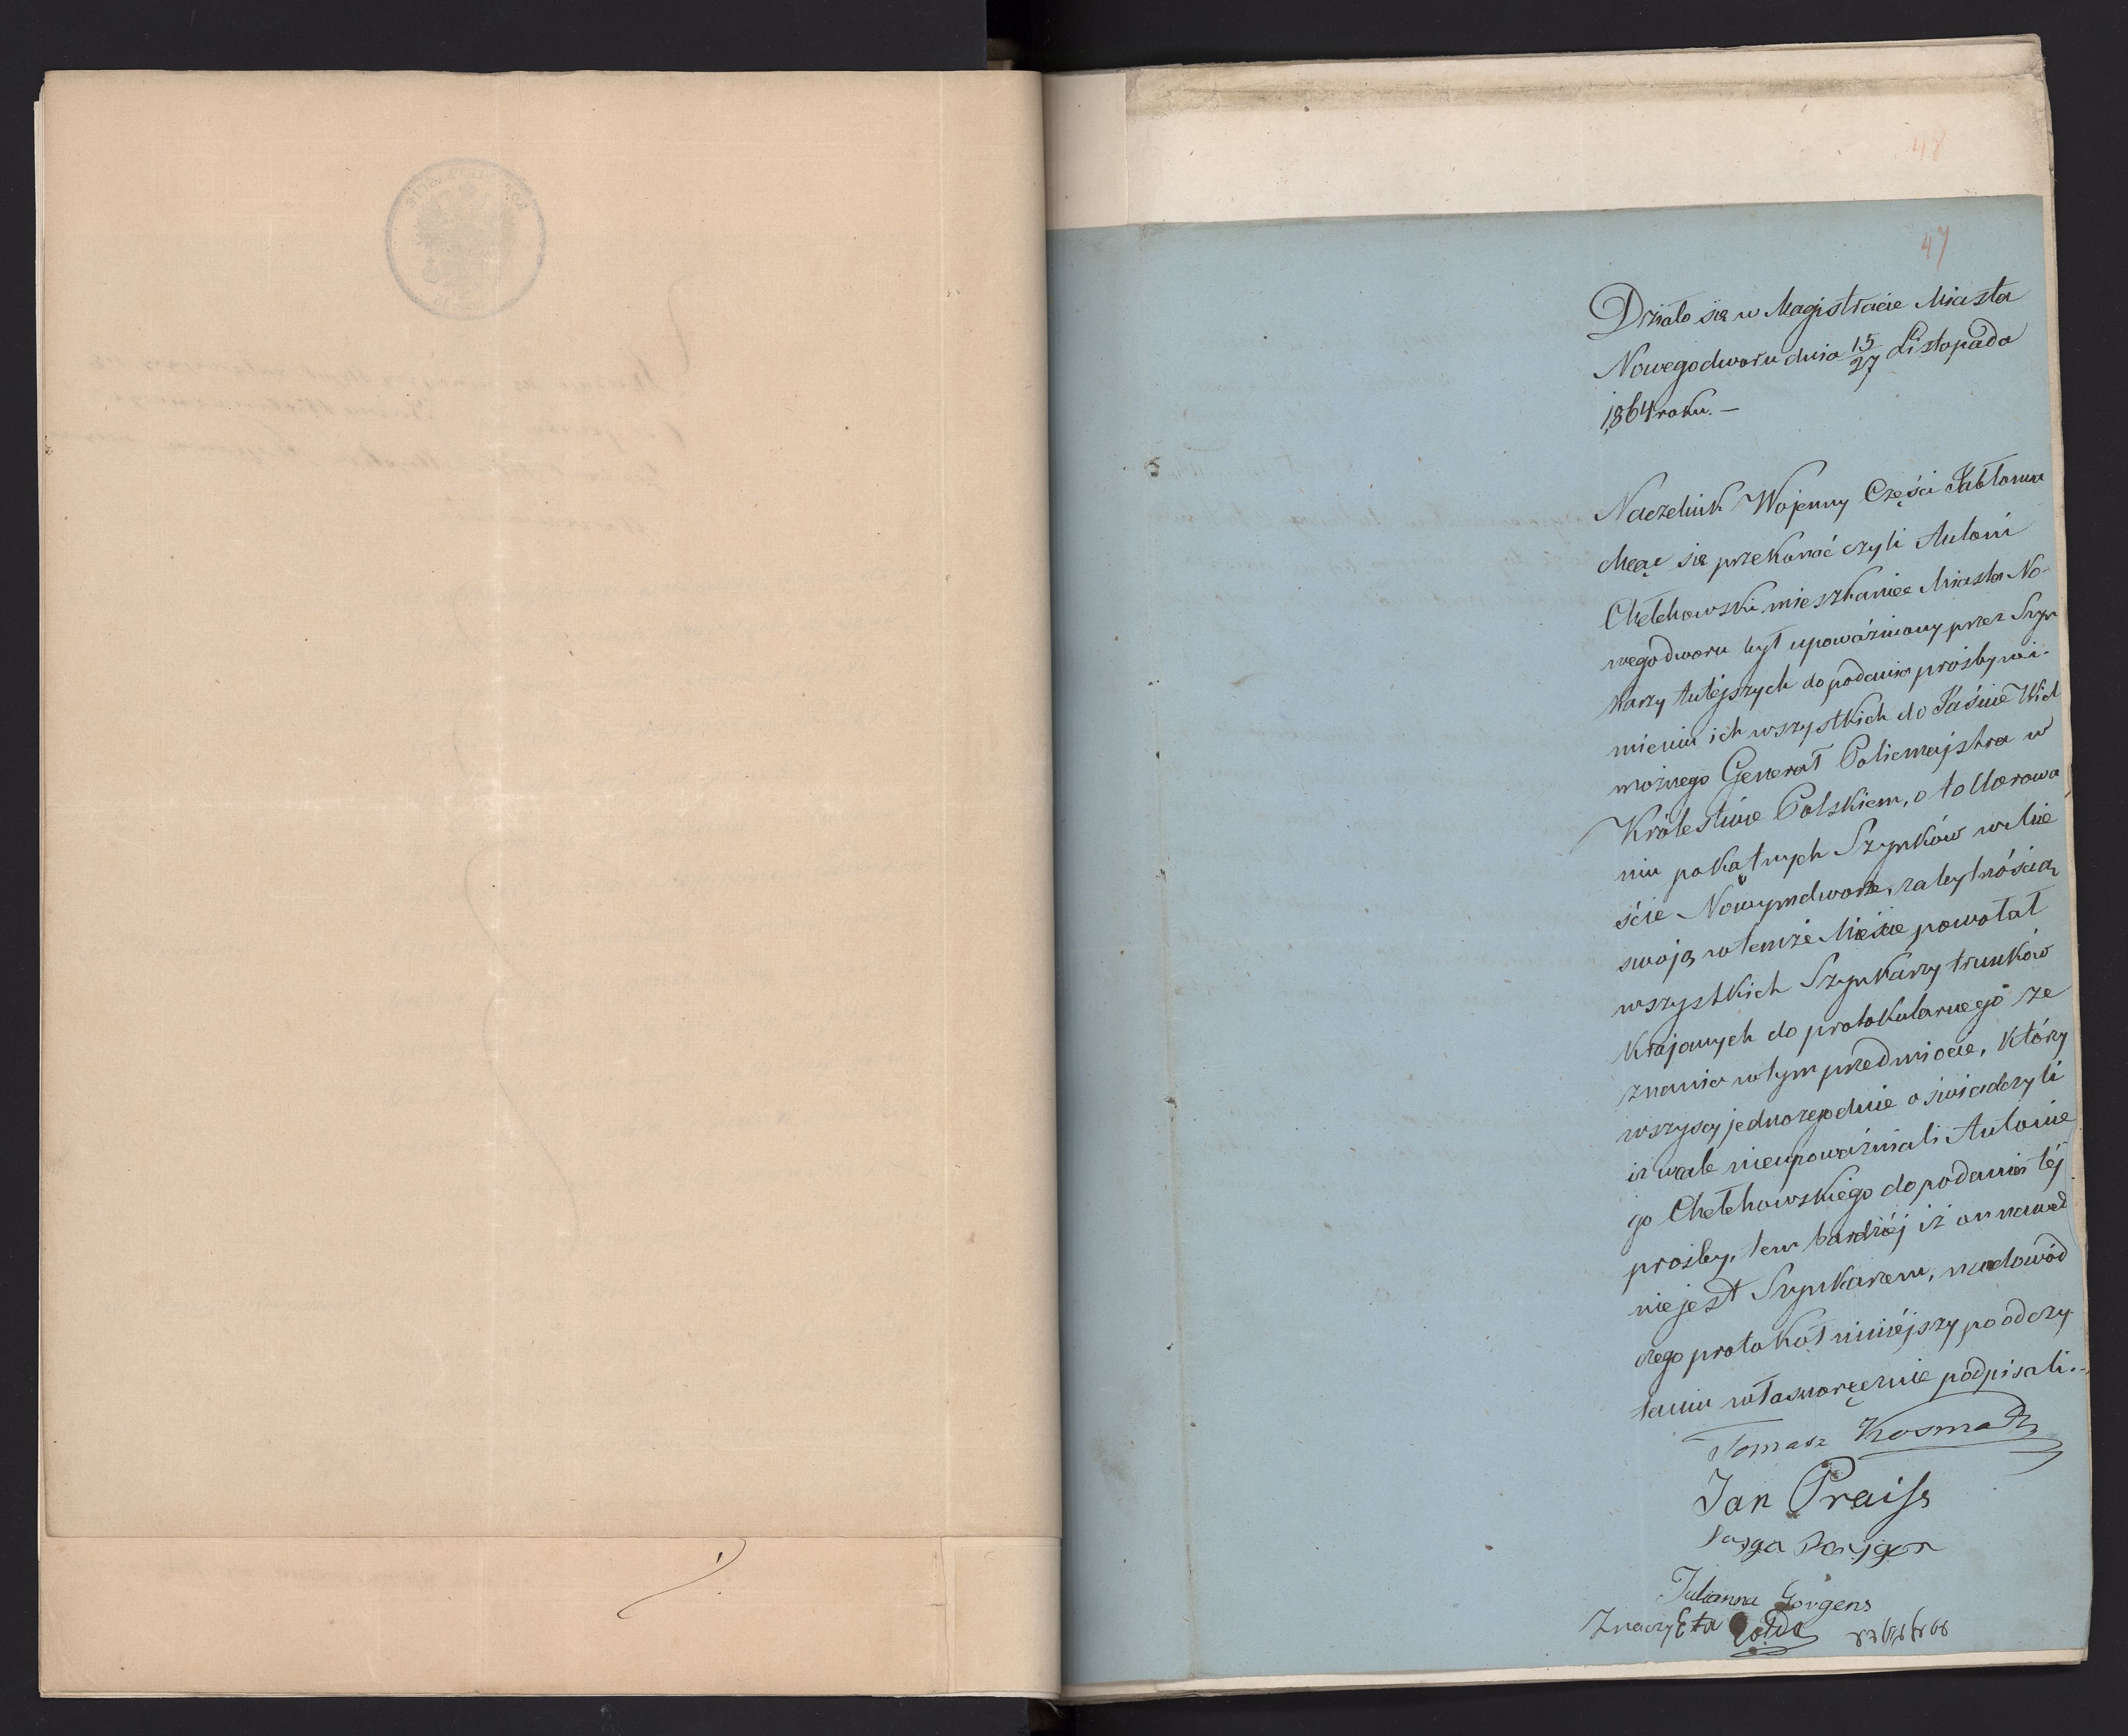 48
47
Działo się w Magistracie Miasta
Nowegodworu dnia 15/27 Listopada
1864 roku. –
Naczelnik Wojenny Części Jabłonna
chcąc się przekonać czyli Antoni
Chełchowski mieszkaniec Miasta No-
wegodworu był upoważniony przez Szyn
karzy tutejszych do podania prośby wi-
mieniu ich wszystkich do Jaśnie Wiel
możnego Generał Policmajstra w
Królestwie Polskiem, o tollerowa
niu pokątnych Szynków w Mie
ście Nowymdworze, za bytnością
swoją w temże Mieście powołał
wszystkich Szynkarzy trunków
Krajowych do protokularnego ze
znania w tym przedmiocie, którzy
wszyscy jednozgodnie oświadczyli
iż wcale nieupoważniali Antonie
go Chełchowskiego do podania téj
prośby, tem bardziéj iż on nawet
nie jest Szynkarzem, na dowód
czego protokół niniéjszy po odczy
taniu własnoręcznie podpisali. –
Tomasz Kosma
Jan Praiss
Julianna Gorgens
Znaczy Eta Gołda